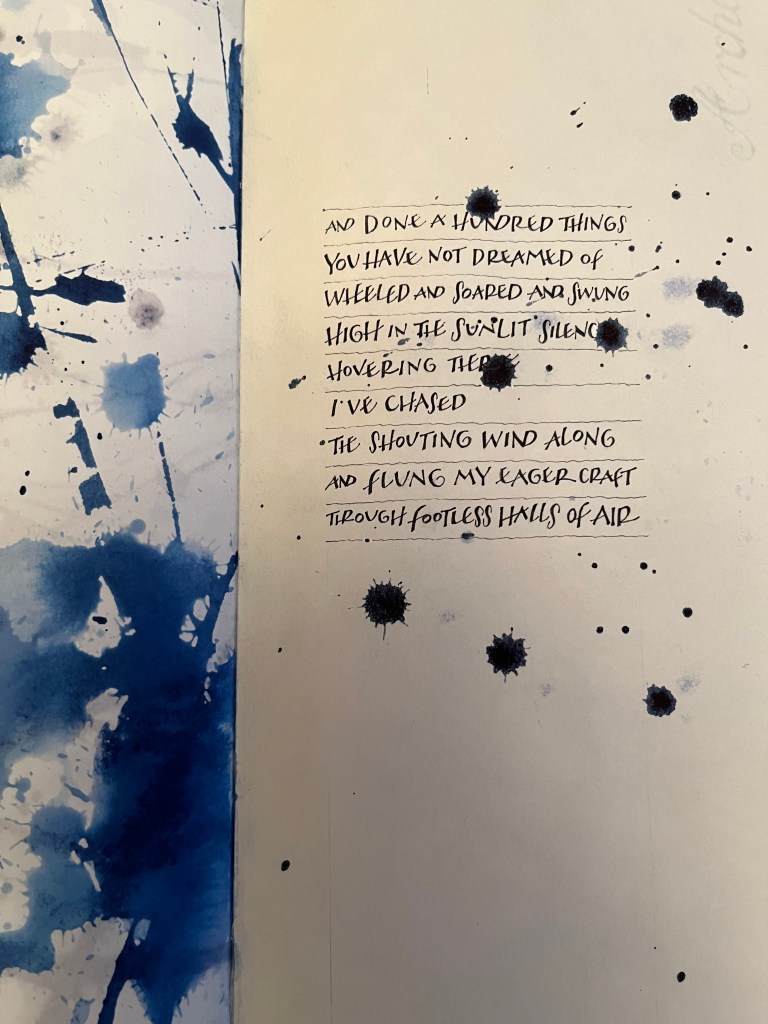 AND DONE A HUNDRED THINGS
YOU HAVE NOT DREAMED OF
WHEELED AND SOARED AND SWUNG
HIGH IN THE SUNLIT SILENCE
HOVERING THERE
I'VE CHASED
THE SHOUTING WIND ALONG
AND FLUNG MY EAGER CRAFT
THROUGH FOOTLESS HALLS OF AIR